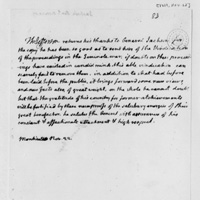 Th: Jefferson returns his thanks to General Jackson for
the copy he has been so good as to send him of the vindication
of the proceedings in the Seminole war. if doubts on these procee-
dings have existed in candid minds this able vindication can
scarcely fail to remove them. in addition to what had before
been laid before the public, it brings forward some new views
and new facts also, of great weight. on the whole he cannot doubt
but that the gratitude of his country for former atchievements
will be fortified by these new proofs of the salutary energies of this
great benefactor. he salutes the General with assurances of his
constant & affectionate attachment & high respect.
Monticello Nov. 22